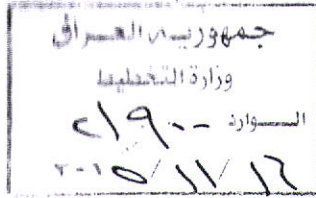 جمهورية العراق
وزارة التخطيط
الـــوارد ٢١٩٠٠
١٦/١١/٢٠١٥